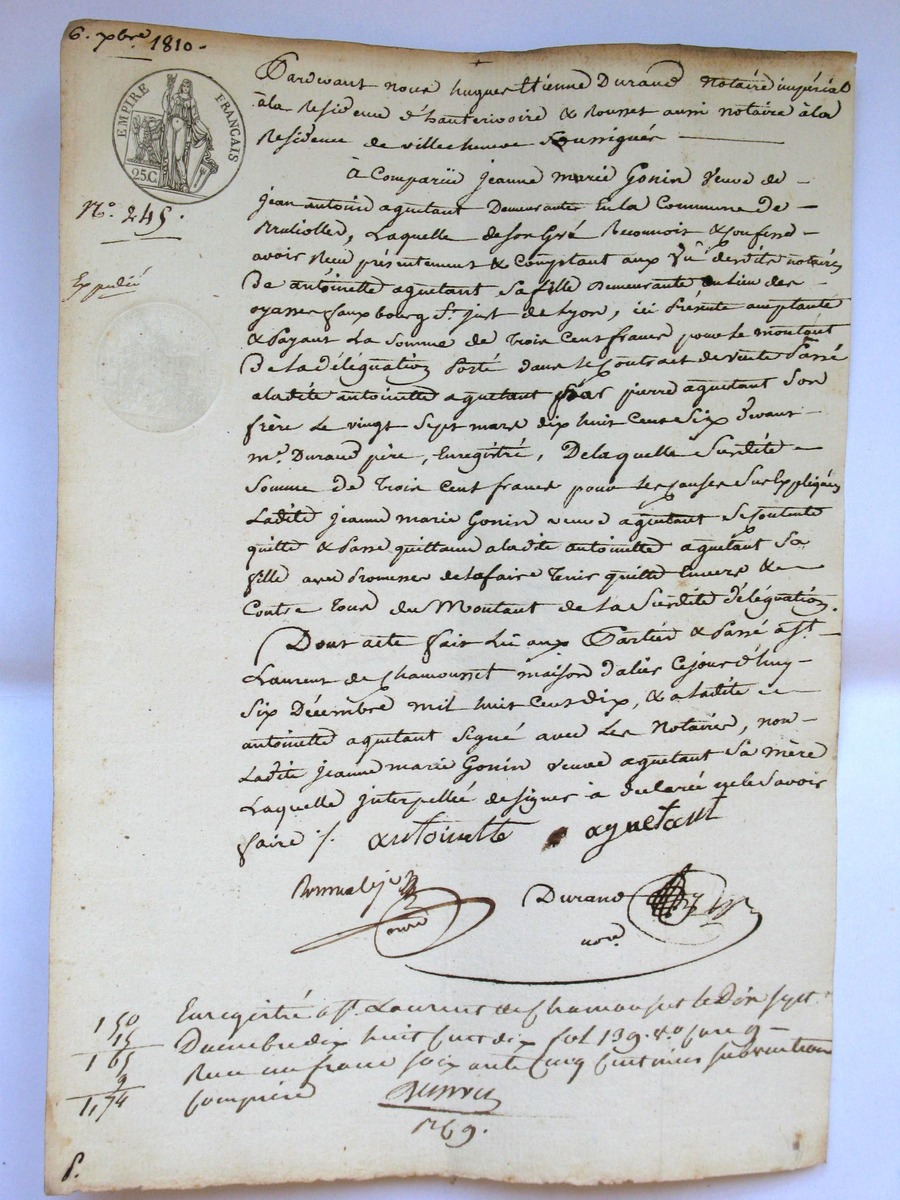 6. xbre 1810.
EMPIRE FRANÇAIS
25C.
No. 245.
Expedié
Pardevant nous hugues Etienne Durand notaire impérial
à la Residence d'hauterivoire & Rousset aussi notaire à la
Residence de villecheneve Soussignés
à Comparüe jeanne marie Gonin veuve de
jean antoine aguetant Demeurante En la Commune de
Brulliolles, Laquelle de son Gré Reconnoit & Confesse
avoir Recu présentement & Comptant aux vû desdits notaires
De antoinette aguetant Sa fille Demeurante au lieu des
oyasses fauxbourg St. just de Lyon, ici Présente acceptante
& Payant La Somme de Trois Cent francs pour Le montant
De La délégation Porté dans Le Contract de vente Passé
a ladite antoinette aguetant par pierre aguetant Son
frère Le vingt Sept mars dix huit Cent Six devant
me. Durand père, Enregistré, De laquelle Susdite
Somme de Trois Cent francs pour Les causes Sus Expliquées
Ladite jeanne marie Gonin veuve aguetant Se Contente
quitte & Passe quittance a ladite antoinette aguetant Sa
fille avec Promesse de la faire Tenir quitte Envers &
Contre Tous du Montant de La Susdite délégation.
Dont acte fait Lû aux Parties & Passé a St.
Laurent de Chamousset maison d'alier Ce jour d'huy
Six Décembre mil huit Cent dix, & a ladite
antoinette aguetant Signé avec Les Notaires, non
Ladite jeanne marie Gonin veuve aguetant Sa mère
Laquelle interpellée de signer à declarée ne le Savoir
faire /. antoinette aguetant
Durand
nore
Enregistré a St. Laurent de Chamousset le Dix sept
Decembre dix huit Cent dix fol 139. vo. Case 9
Recu un franc soixante Cinq Centimes subvention
Comprise
1 50
15
1 65
9
1,74